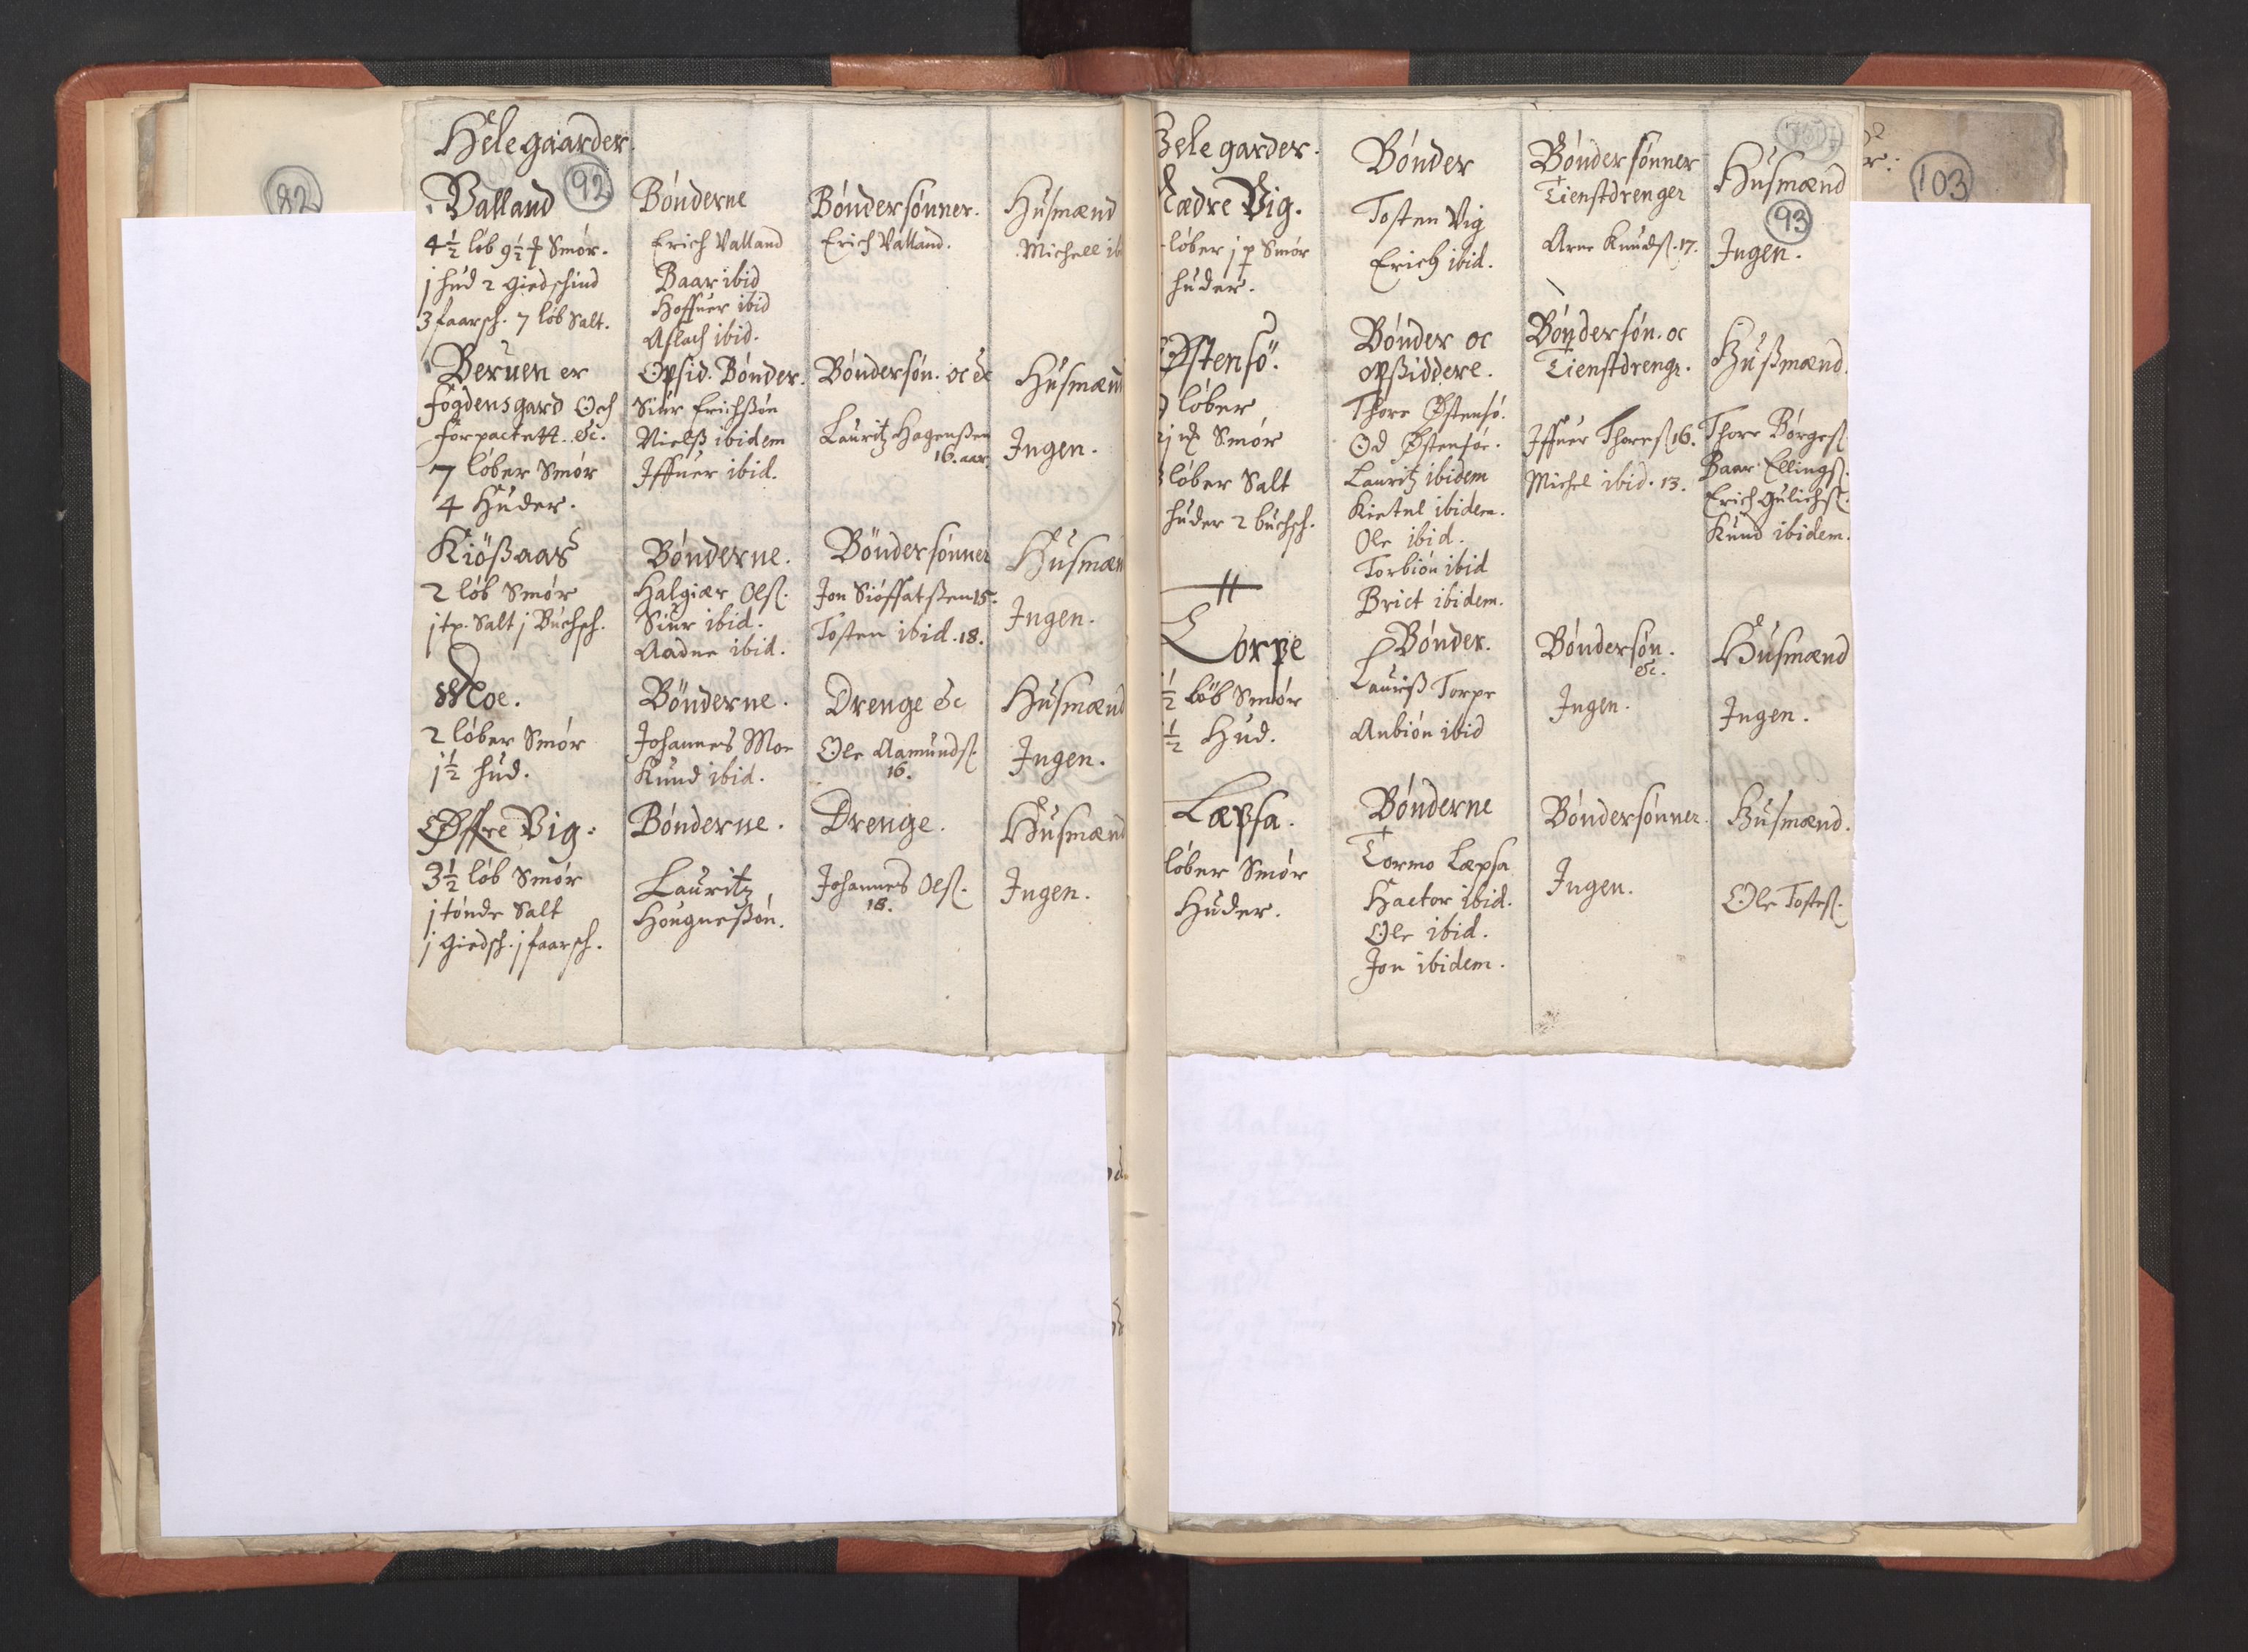 82
Helegaarder.
92
Valland
4½ löb 9½ ꝑ Smör.
j hud 2 Giedschind
3 faarsch. 7 löb Salt.
Bönderne
Erich Valland
Baar ibid
Hoffuer ibid
Aslach ibid.
Böndersönner.
Erich Valland.
Husmænd
Michell ib
Beruen er
fogdensgard Och
forpactett. &c.
7 löber Smör
4 Huder.
Opsid. Bönder.
Siur Erichßön
Nielß ibidem
Iffuer ibid.
Böndersön. oc &c
Lauritz Hagenßen
16. aar.
Husmænd
Ingen.
Kiößaas
2 löb Smör
j tp. Salt j Buchsch.
Bönderne.
Halgier Olß.
Siur ibid.
Aadne ibid.
Böndersönner
Jon Siöffatßen 15.
Tosten ibid. 18.
Husmæn
Ingen.
Moe.
2 löber Smör
j½ hud.
Bönderne.
Johannes Moe
Knud ibid.
Drenge &c
Ole Aamundß.
16.
Husmænd
Ingen.
Öffre Vig.
3½ löb Smör
j tönde Salt
j Giedsch. j faarsch.
Bönderne.
Lauritz
Hougneßön.
Drenge.
Johannes Olß.
18.
Husmænd
Ingen.
103
Hele garder.
Nædre Vig.
löber j ꝑ Smör
huder.
Bönder
Tosten Vig
Erich ibid.
Böndersönner
Tienstdrenger
Arne Knudß. 17.
Husmænd
93
Ingen.
Östensö.
löber
Smör
löber Salt
huder 2 buchsch.
Bönder oc
opßiddere.
Thore Östensö.
Od Östensöe.
Lauritz ibidem
Kietel ibidem.
Ole ibid.
Torbiön ibid
Briet ibidem.
Böndersön. oc
Tienstdrenge.
Iffuer Thoresß 16.
Michel ibid. 13.
Hußmænd.
Thore Börgesß
Baar Ellingß.
Erich Gulichß.
Knud ibidem.
Torpe
½ löb Smör
½ Hud.
Bönder.
Laurß Torpe
Anbiön ibid
Böndersön.
&c.
Ingen.
Husmænd
Ingen.
Læpsa.
löber Smör
Huder.
Bönderne
Tormo Læpsa
Hactor ibid.
Ole ibid.
Jon ibidem.
Böndersönner.
Ingen.
Husmænd.
Ole Tostesß.